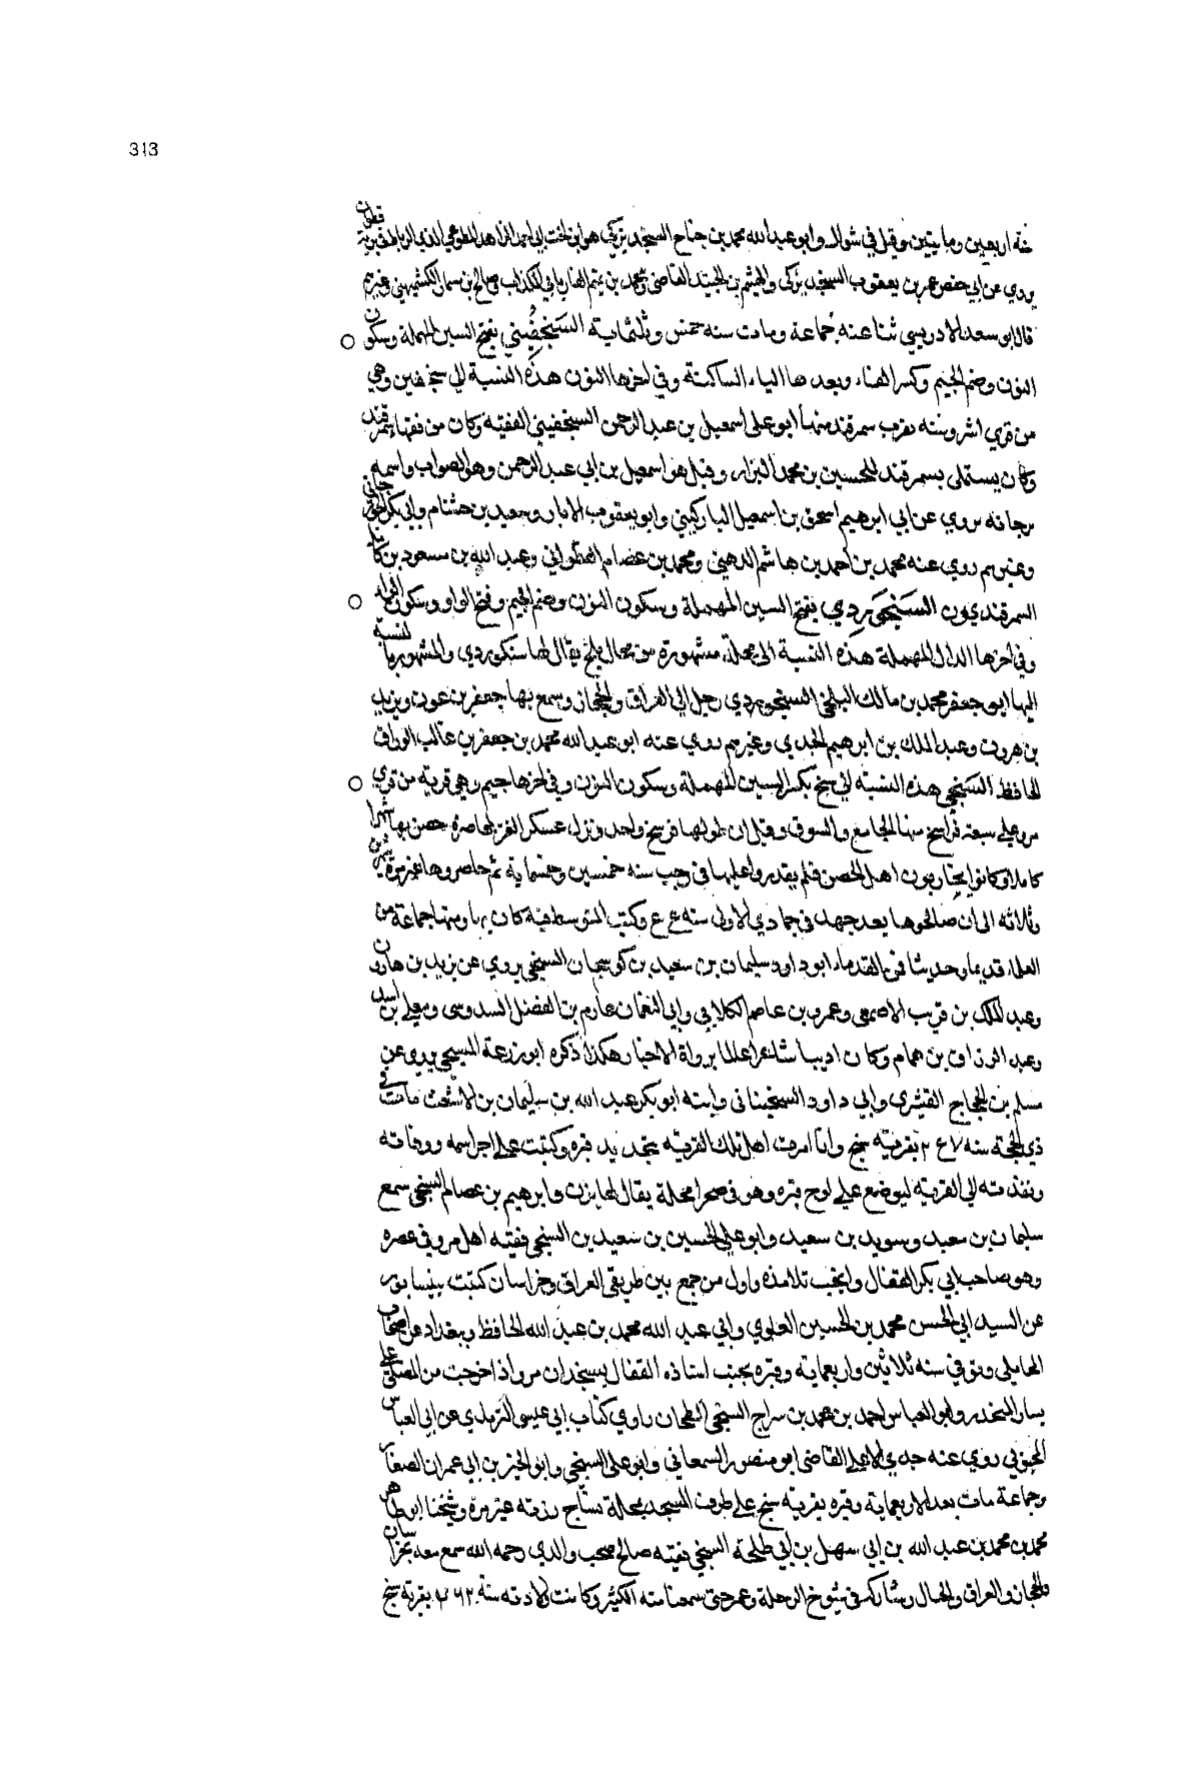 313
سنة اربعين ومايتين وقيل في شوال وابو عبد الله محمد بن جناح السنجديزكي هو ابن اخت ابي احمد الزاهد المطوعي الذي الرباط بقرية قطوان
يروي عن ابي حفص عمر بن يعقوب السنجديزكي والهيثم بن الجنيد القاضي ومحمد بن تميم الفاريابي الكذاب وصالح بن سمان الكشميهني وغيرهم
قال ابو سعد الادريسي ثنا عنه جماعة ومات سنه خمس وثلثماية السنجفيني بفتح السين المهملة وسكون
النون وضم الجيم وكسر الفاء وبعدها الياء الساكنة وفي اخرها النون هذه النسبة الى سنجفين وهي
من قري اشروسنه بقرب سمرقند منها ابو على اسمعيل بن عبد الرحمن السنجفيني الفقيه وكان من فقهاء سمرقند
وكان يستملى بسمرقند للحسين بن محمد البزار، وقيل هو اسمعيل بن ابي عبد الرحمن وهو الصواب واسمه
برجانه يروي عن ابي ابرهيم اسحق بن اسمعيل الباركيثي وابو يعقوب الابار وسعيد بن خشنام وابي بكر الجوزجاني
وغيرهم روي عنه محمد بن احمد بن هاشم الذهبي ومحمد بن عصام القطواني وعبد الله بن مسعود بن كامل
السمرقنديون السنجوردي بفتح السين المهملة وسكون النون وضم الجيم وفتح الواو وسكون الراء
وفي اخرها الدال المهملة هذه النسبة الى محلة مشهورة من محال بلخ يقال لها سنكوردي والمشهور بالنسبة
اليها ابو جعفر محمد بن مالك البلخي السنجوردي رحل الي العراق والحجاز وسمع بها جعفر بن عون ويزيد
بن هرون وعبد الملك بن ابرهيم الجدي وغيرهم روي عنه ابو عبد الله محمد بن جعفر بن غالب الوراق
الحافظ السنجي هذه النسبة الي سنج بكسر السين المهملة وسكون النون وفي اخرها جيم وهي قرية من قري
مرو على سبعة فراسخ منها الجامع والسوق وقيل ان طولها فرسخ واحد ونزل عسكر الغز لمحاصرة حصن بها شهرا
كاملا وكانوا يحاربون اهل الحصن فلم يقدروا عليها في رجب سنه خمسين وخمسماية ثم حاصروها غير مرة مرتين
وثلاثه الى ان صالحوها بعد جهد في جمادي الاولى سنه وكتب المتوسط فيه كان بها ومنها جماعة من
العلماء قديما وحديثا فمن القدماء ابو داود سليمان بن سعيد بن كوسجان السنجي يروي عن يزيد بن هارون
وعبد الملك بن قريب الاصمعي وعمرو بن عاصم الكلابي وابي النعمان عارم بن الفضل السدوسي ومعلى بن اسد
وعبد الرزاق بن همام وكان اديبا شاعرا عالما برواة الاخبار هكذا ذكره ابو زرعة السنجي يروي عن
مسلم بن الحجاج القشيرى وابي داود السجستانى وابنه ابو بكر عبد الله بن سليمان بن الاشعث مات في
ذي الحجة سنه بقرية سنج وانا امرت اهل تلك القرية بتجديد قبره وكتبت على اجر اسمه ووفاته
ونفذته الي القرية ليوضع علي لوح قبره وهو في صحرا محلة يقال لها وابرهيم بن عصام السنجي سمع
سليمان بن سعيد وسويد بن سعيد وابو على الحسين بن شعيب السنجي فقيه اهل مرو في عصره
وهو صاحب ابي بكر القفال وانجب تلامذه واول من جمع بين طريقي العراق وخراسان كتبت بنيسابور
عن السيد ابي الحسن محمد بن الحسين العلوي وابي عبد الله محمد بن عبد الله الحافظ وببغداد عن اصحاب
المحاملي وتوفي سنه ثلاثين واربعمايه وقبره بجنب استاذه القفال بسنجدان مرو اذا خرجت من المصلي على
يسار المنحدر وابو العباس احمد بن محمد بن سراج السنجي الطحان راوي كتاب ابي عيسى الترمذي عن ابي العباس
المحبوبي روي عنه جدي الاعلى القاضي ابو منصور السمعاني وابو على السنجي وابو الخير بن ابي عمران الصفار
وجماعة مات بعد الاربعماية وقبره بقرية سنج على طرف المسجد بمحلة زرته غير مرة وشيخنا ابو طاهر
محمد بن محمد بن عبد الله بن ابي سهل بن ابي طلحة السنجي فقيه صالح صحب والدي رحمه الله سمع معه بخراسان
والحجاز والعراق والجبال وشاركه في شيوخ الرحلة وعمر حتى سمعنا منه الكثير وكانت ولادته سنة بقرية سنج